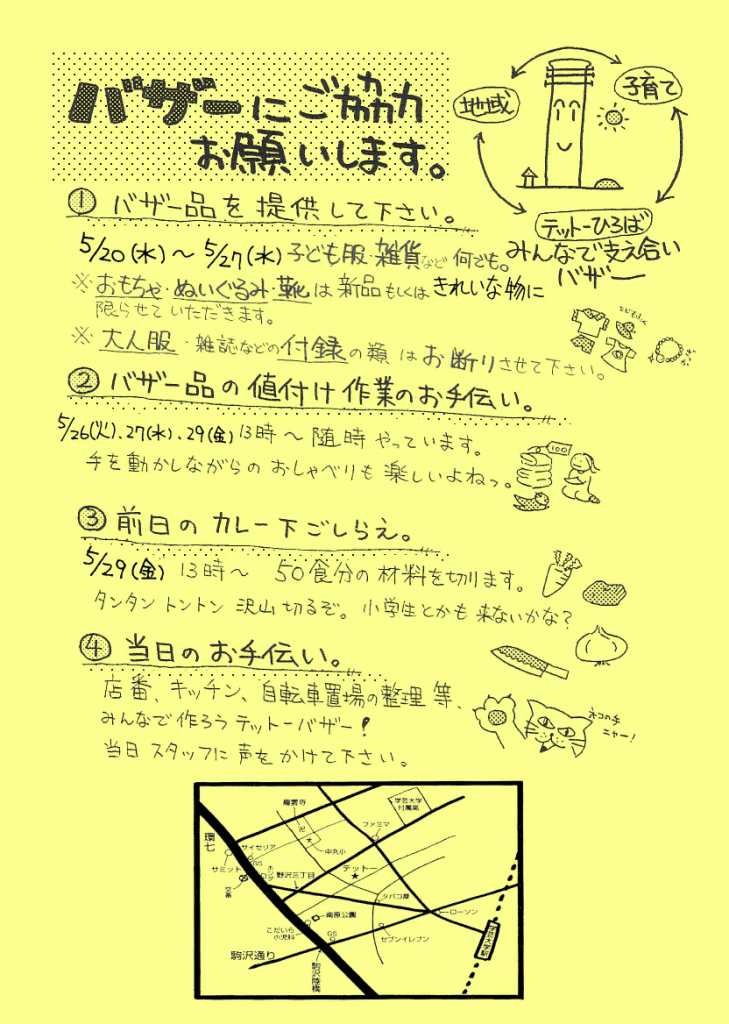 バザーにご協力
お願いします。
地域
子育て
テットーひろば
みんなで支え合い
バザー
① バザー品を提供して下さい。
5/20(水)～5/27(水)子ども服・雑貨など何でも。
※おもちゃ・ぬいぐるみ・靴は新品もしくはきれいな物に
限らせていただきます。
※大人服・雑誌などの付録の類はお断りさせて下さい。
② バザー品の値付け作業のお手伝い。
5/26(火).27(水).29(金)13時～随時やっています。
手を動かしながらのおしゃべりも楽しいよねっ。
100
③ 前日のカレー下ごしらえ。
5/29(金) 13時～ 50食分の材料を切ります。
タンタントントン沢山切るぞ。小学生とかも来ないかな?
④ 当日のお手伝い。
店番、キッチン、自転車置場の整理等、
みんなで作ろうテットーバザー!
当日スタッフに声をかけて下さい。
ネコの手
ニャー!
龍雲寺
学芸大学
付属高
環七
ファミマ
サイゼリア
中丸小
GS
サミット
野沢三丁目
テットー
★
交番
タバコ屋
南原公園
ローソン
こだいら
小児科
GS
セブンイレブン
学芸大学駅
駒沢通り
駒沢陸橋